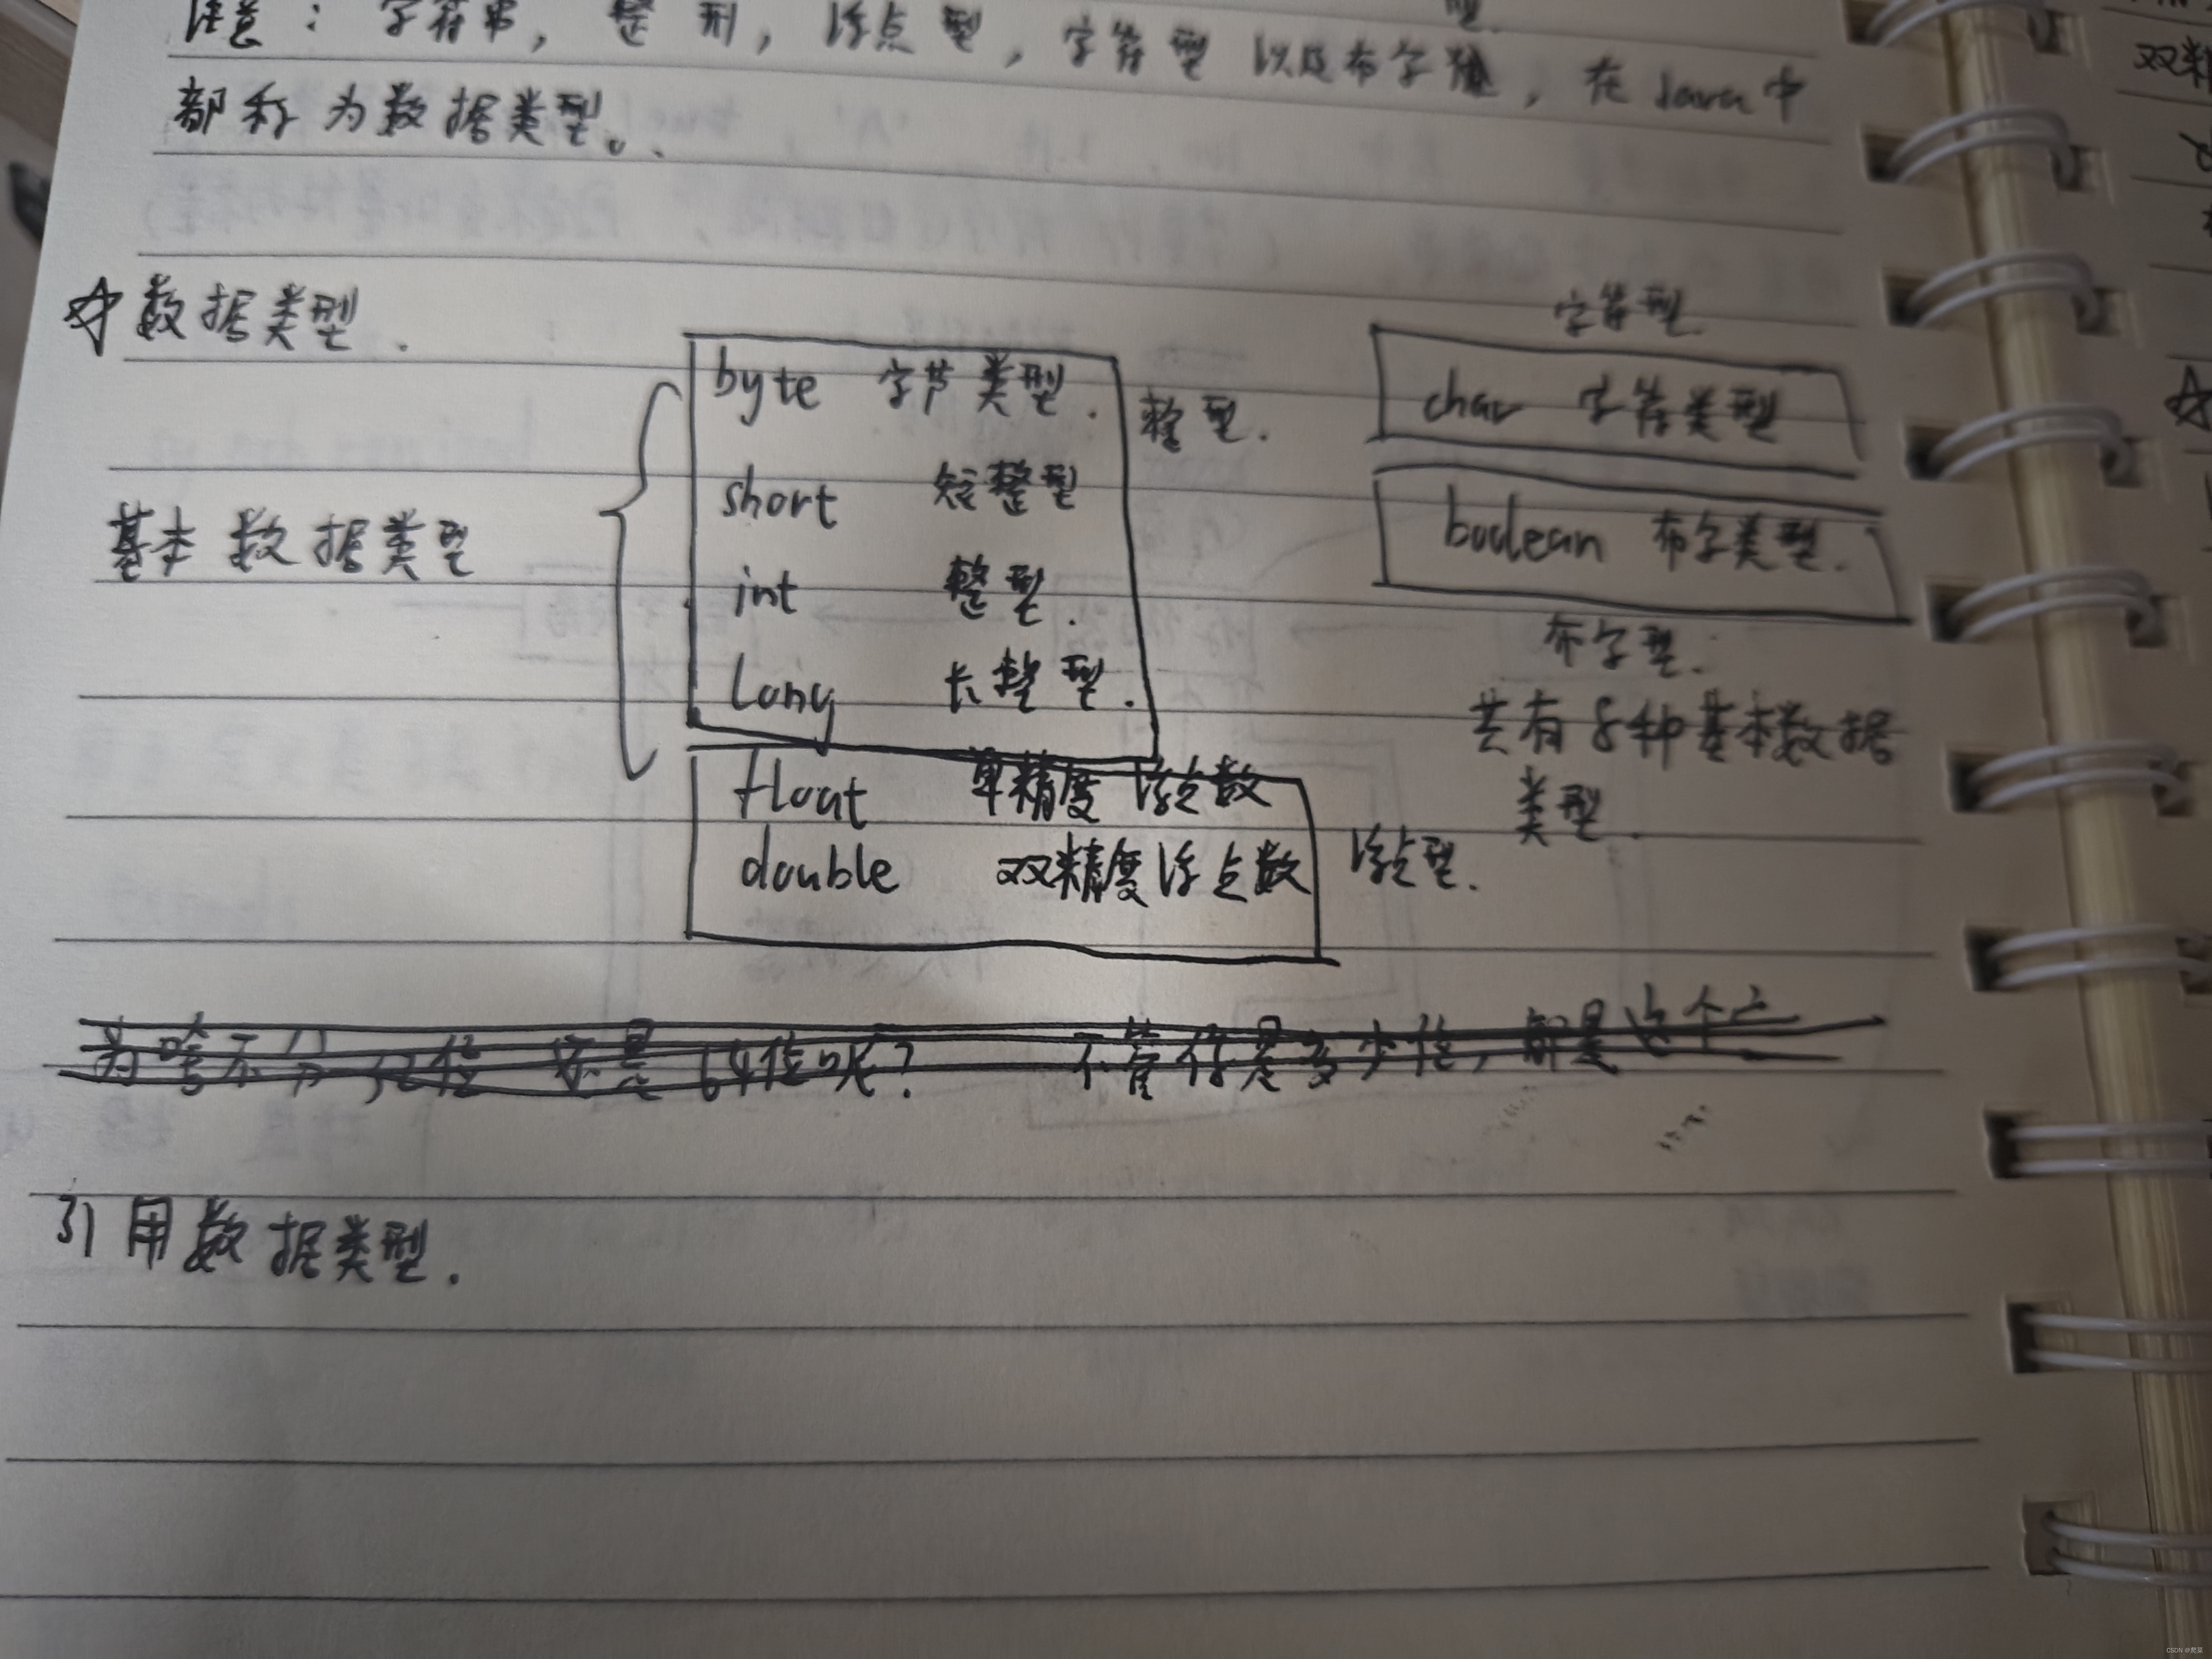 型.
注意：字符串，整形，浮点型，字符型以及布尔型，在Java中
都称为数据类型。
☆数据类型.
基本数据类型
byte 字节类型.
short 短整型
int 整型.
long 长整型.
整型.
float 单精度浮点数
double 双精度浮点数
浮点型.
字符型
char 字符类型
boolean 布尔类型.
布尔型.
共有8种基本数据
类型.
为啥不分32位 还是64位呢？ 不管你是多少位，都是这个
引用数据类型.
双精
CSDN @